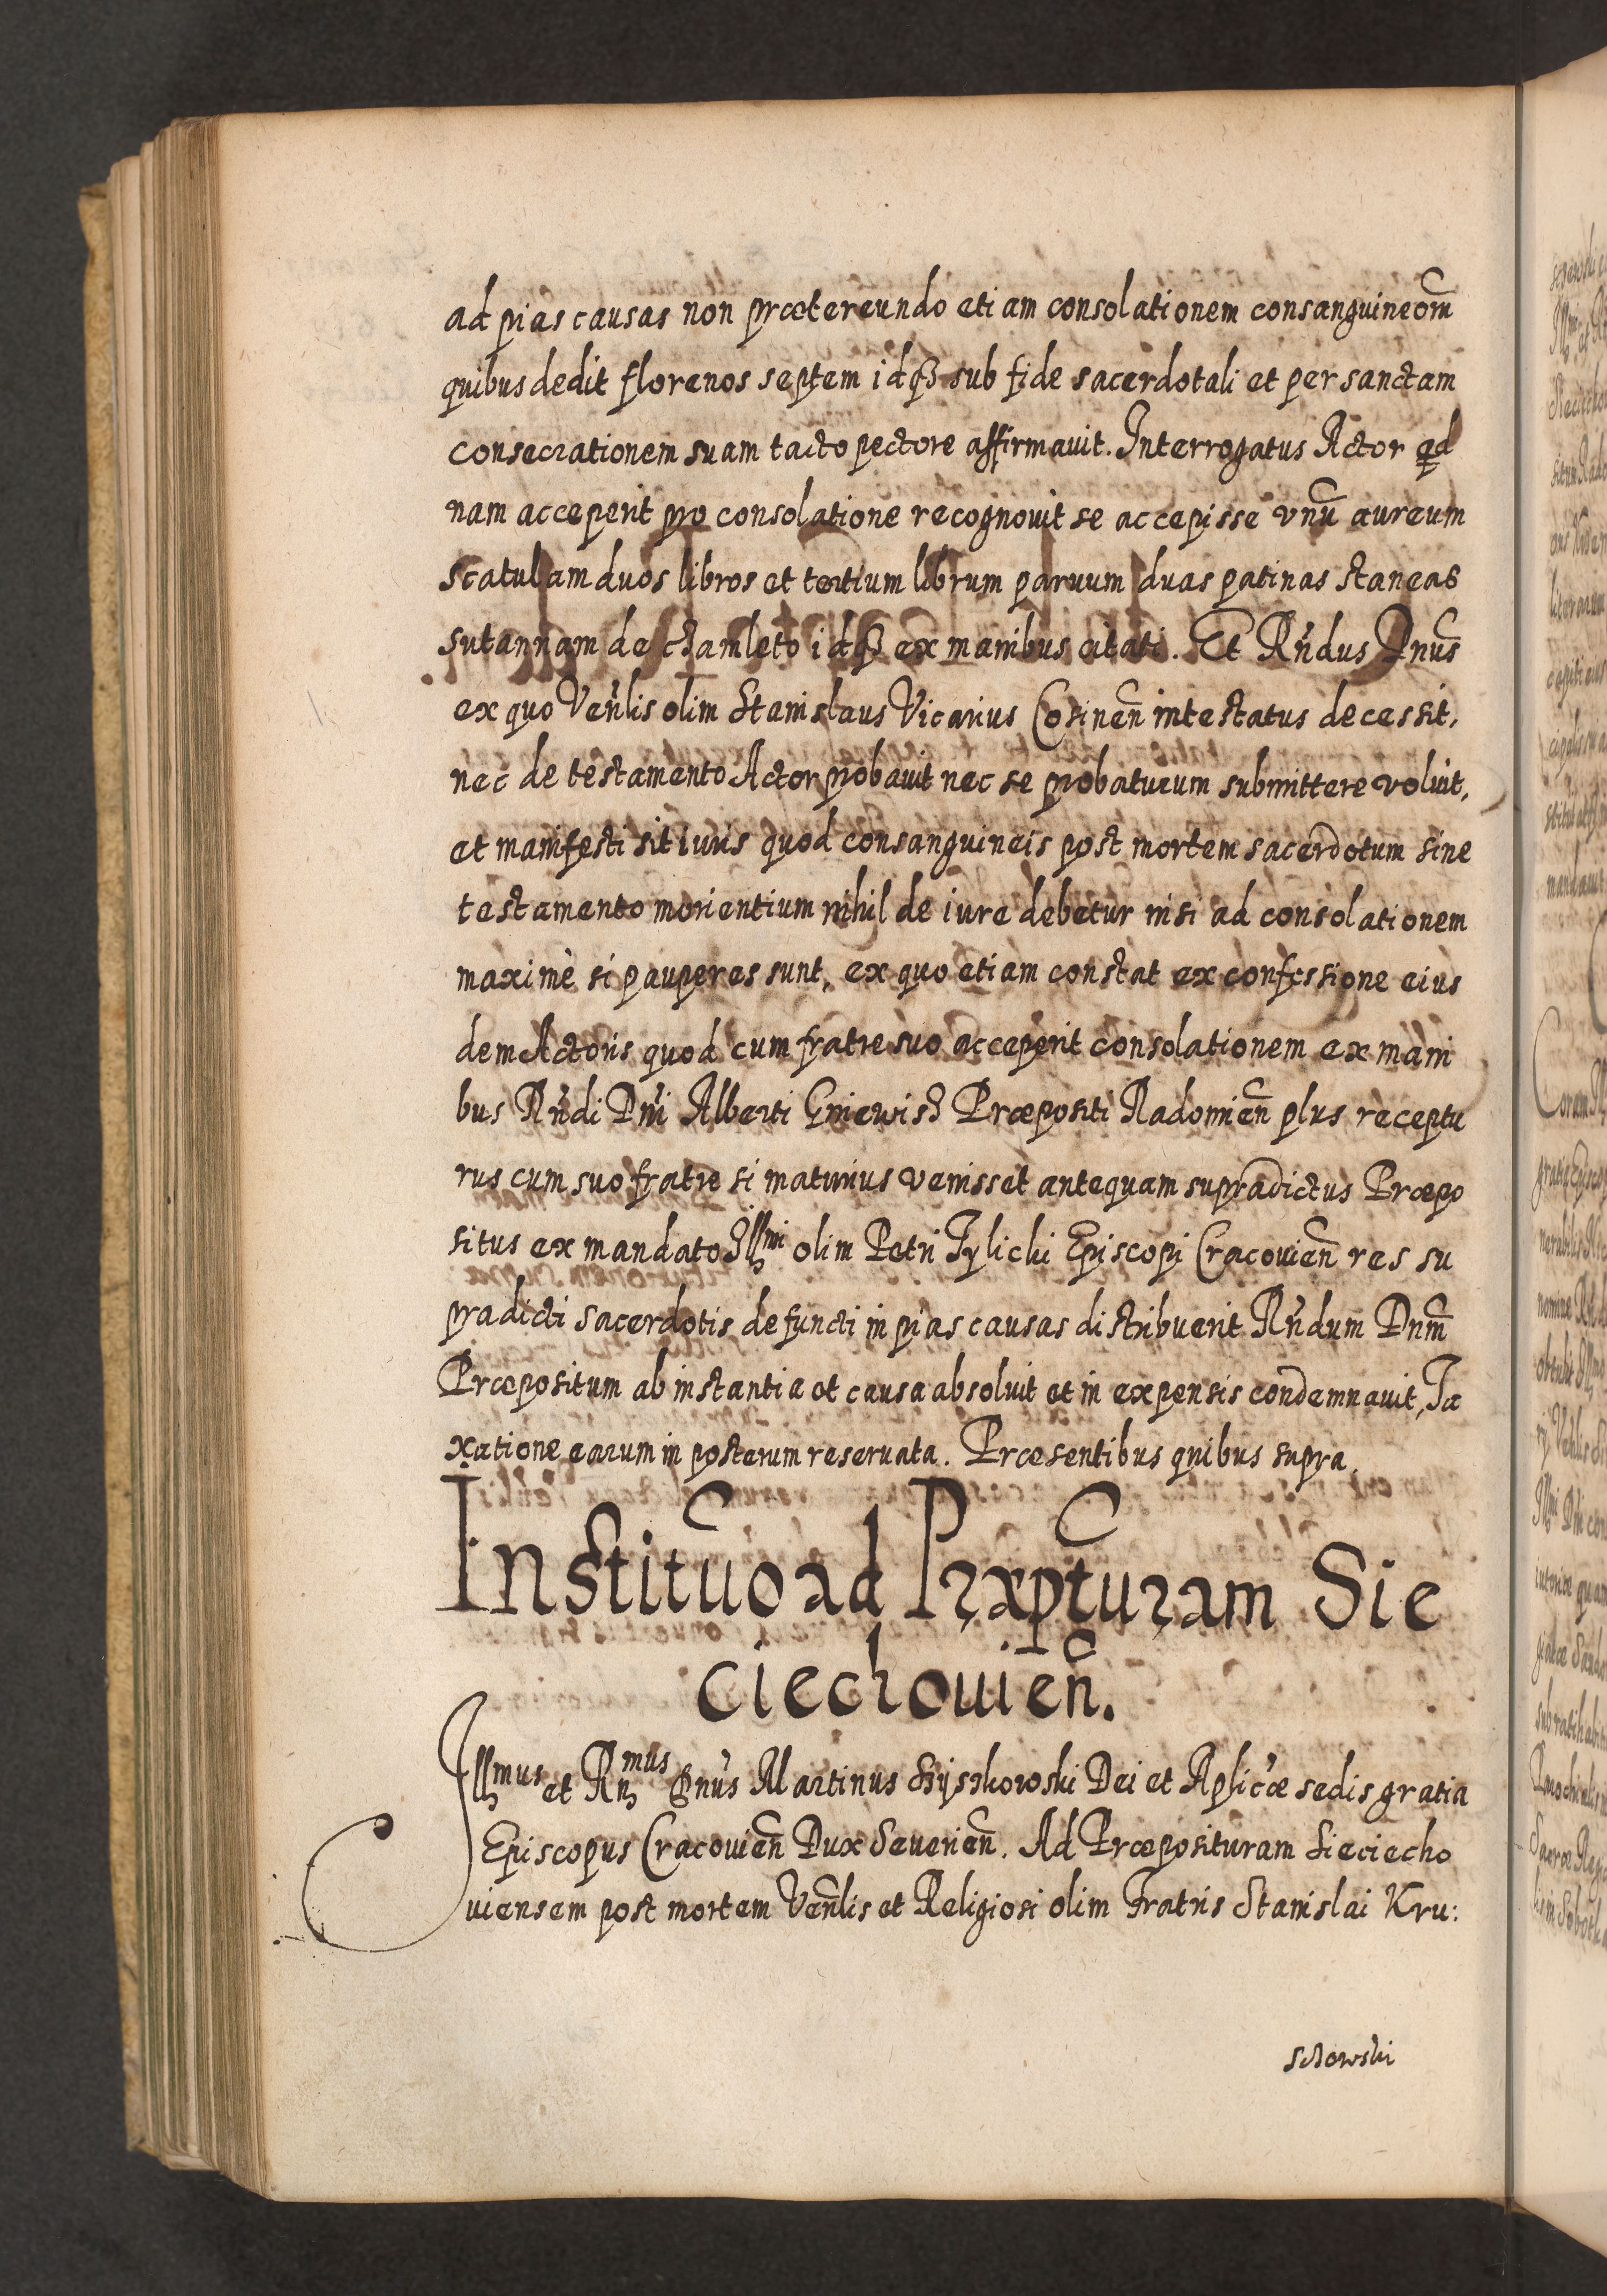 ad pias causas non prætereundo etiam consolationem consanguineor̃m
quibus dedit florenos septem idq3 sub fide sacerdotali et per sanctam
consecrationem suam tacto pectore affirmauit. Interrogatus Actor qd
nam acceperit pro consolatione recognouit se accepisse vnũ aureum
scatulam duos libros et tertium librum paruum duas patinas staneas
sutannam de chamleto idq3 ex manibus citati. Et Rñdus Dnus
ex quo Veñlis olim Stanislaus Vicarius Cosineñ intestatus decessit,
nec de testamento Actor probauit nec se probaturum submittere voluit,
et manifesti sit iuris quod consanguineis post mortem sacerdotum sine
testamento morientium nihil de iure debetur nisi ad consolationem
maximè si pauperes sunt, ex quo etiam constat ex confessione eius
dem Actoris quod cum fratre suo acceperit consolationem ex mani
bus Rñdi Dñi Alberti Gniewisz Præpositi Radomieñ plus receptu
rus cum suo fratre si maturius venisset antequam supradictus Præpo
situs ex mandato Illmi olim Petri Tylicki Episcopi Cracouieñ res su
pradicti sacerdotis defuncti in pias causas distribuerit Rñdum Dnm̃
Præpositum ab instantia et causa absoluit et in expensis condemnauit, Ta
xatione earum in posterum reseruata. Præsentibus quibus supra.
Institũo ad Præpt̃uram Sie
ciechouieñ.
Illmus et Rnmus Dnus Martinus Szyszkowski Dei et Aplicæ sedis gratia
Episcopus Cracouieñ Dux Seuerieñ. Ad Præposituram Sieciecho
uiensem post mortem Veñlis et Religiosi olim Fratris Stanislai Kru:
szowski